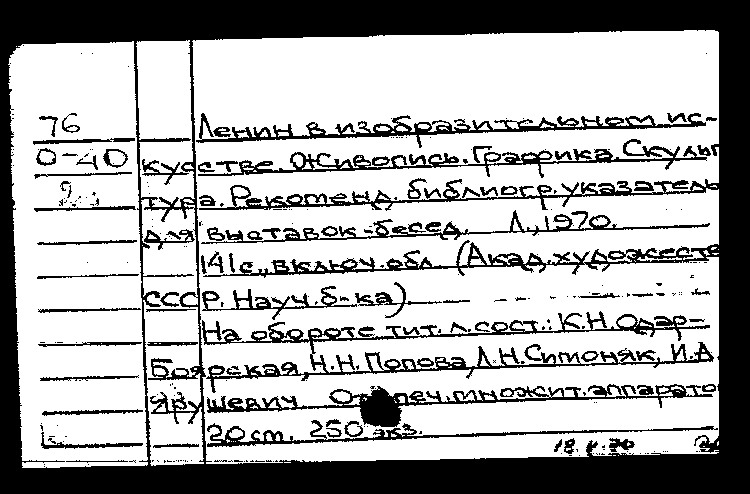 76 Ленин в изобразительном ис-
О-40 кусстве. Живопись. Графика. Скульп
тура. Рекоменд. библиогр. указатель
для выставок-бесед. Л., 1970.
141 с., включ. обл. (Акад. художеств
СССР. Науч. б-ка).
На обороте тит. л. сост.: К.Н. Одар-
Боярская, Н.Н. Попова, Л.Н. Симоняк, И.А.
Ярушевич печ. множит. аппарато
20 см. 250 экз.